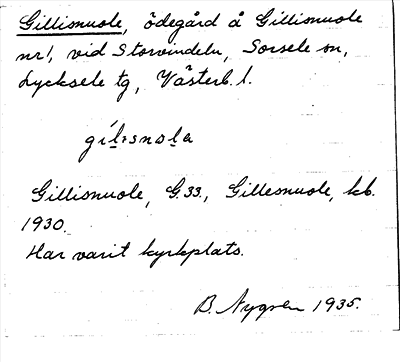 Gillisnuole, ödegård å Gillisnuole
nr 1, vid Storvindeln, Sorsele sn,
Lycksele tg, Västerb. l.
gílisnola
Gillisnuole, G.33., Gillesnuole, kb.
1930.
Har varit kyrkplats.
B. Nygren 1935.